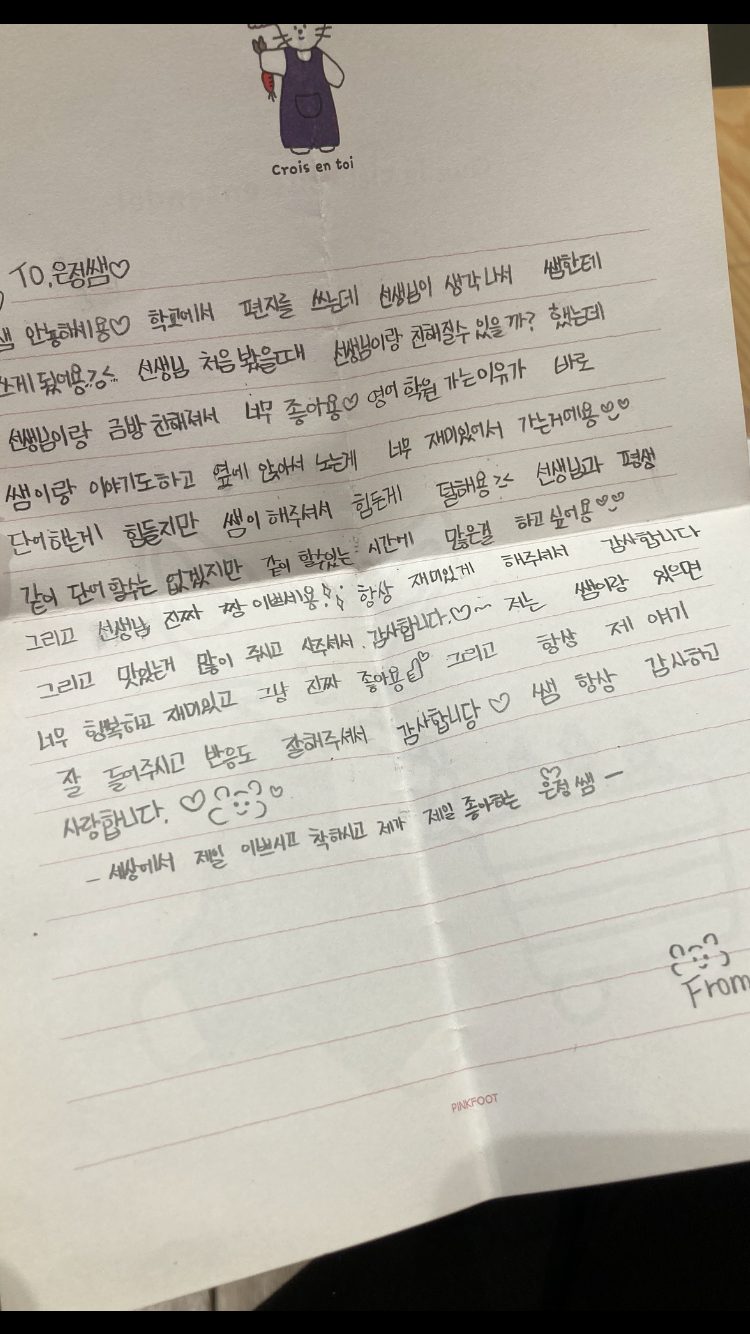 Crois en toi
TO.은정쌤♡
쌤 안농하세용♡ 학교에서 편지를 쓰는데 선생님이 생각나서 쌤한테
쓰게 됐어용>< 선생님 처음 봤을때 선생님이랑 친해질수 있을까? 했는데
선생님이랑 금방 친해져서 너무 좋아용♡ 영어 학원 가는 이유가 바로
쌤이랑 이야기도하고 옆에 앉아서 노는게 너무 재미있어서 가는거에용♡♡
단어하는게 힘들지만 쌤이 해주셔서 힘든게 덜해용>< 선생님과 평생
같이 단어 할수는 없겠지만 같이 할수있는 시간에 많은걸 하고싶어용♡♡
그리고 선생님 진짜 짱 이쁘세용!! 항상 재미있게 해주셔서 감사합니다
그리고 맛있는거 많이 주시고 사주셔서 감사합니다.♡~ 저는 쌤이랑 있으면
너무 행복하고 재미있고 그냥 진짜 좋아용♡ 그리고 항상 제 야기
잘 들어주시고 반응도 잘해주셔서 감사합니당♡ 쌤 항상 감사하고
사랑합니다. ♡ ♡
- 세상에서 제일 이쁘시고 착하시고 제가 제일 좋아하는 은정쌤 -
From
PINKFOOT